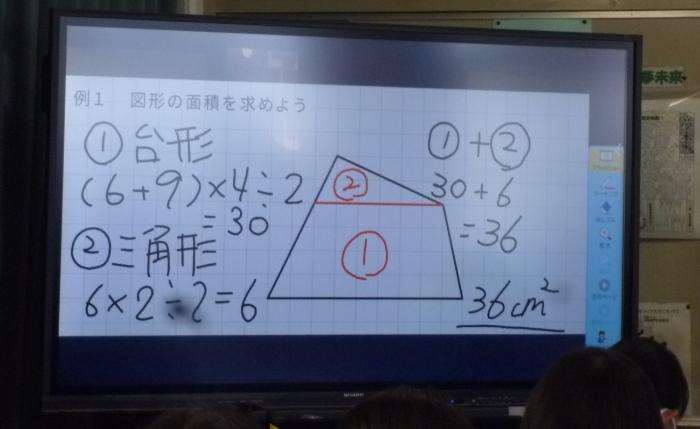 例1 図形の面積を求めよう
① 台形
(6+9)×4÷2
=30
② 三角形
6×2÷2=6
②
①
①+②
30+6
=36
36cm²
SHARP
夢未来